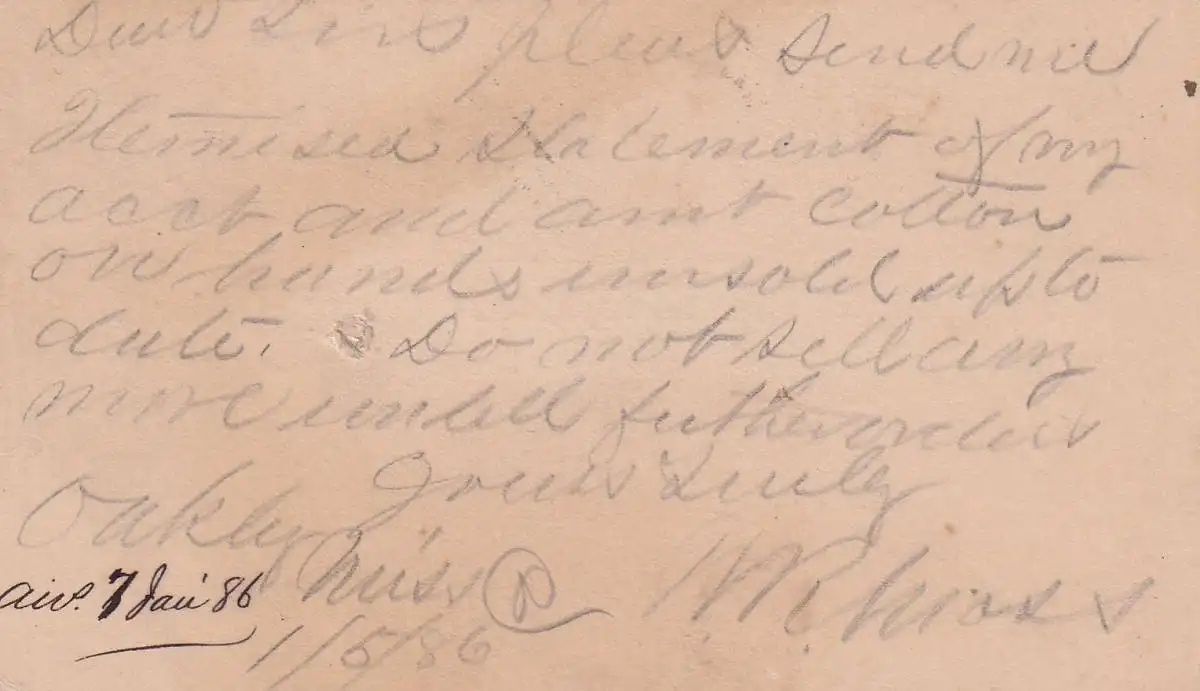 Dear Sirs pleas send me
Itemised Statement of my
acct and amt cotton
on hands unsold up to
date. Do not sell any
more untill futher orders
Yours truly
Oakley
Miss
W R Moss
ans. 7 Jan '86
1/5/86